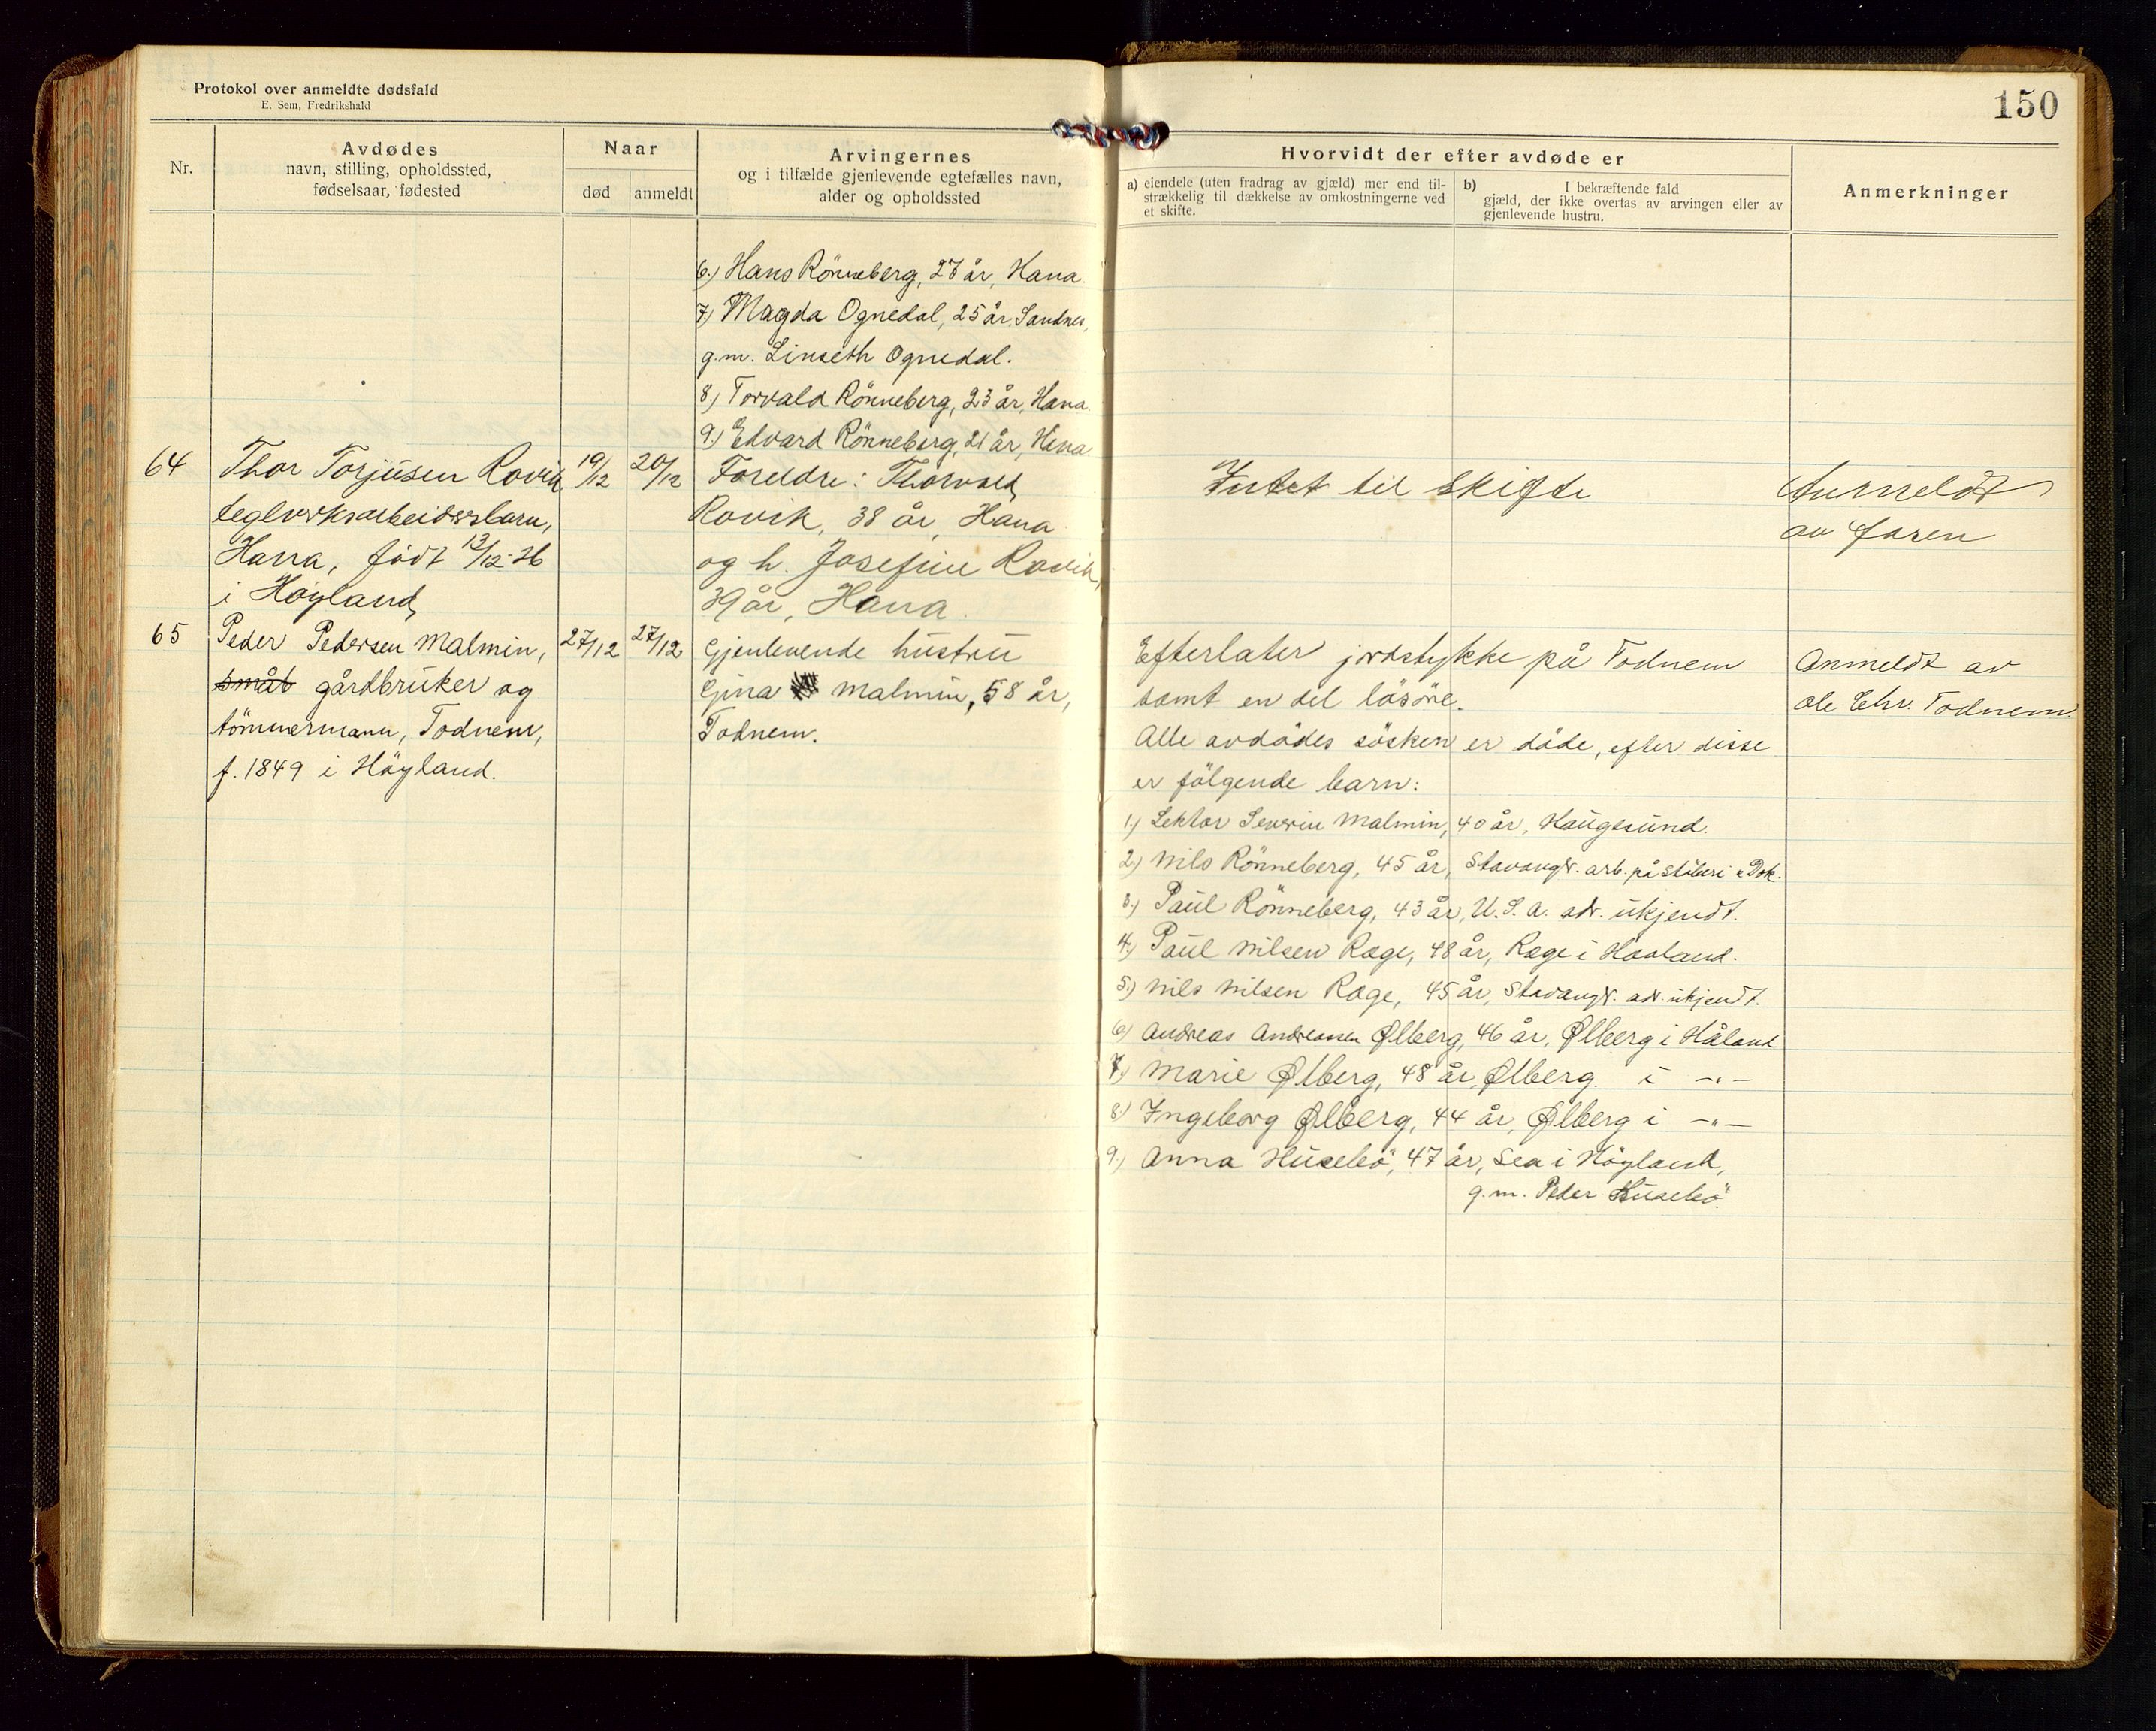 Protokol over anmeldte dødsfald
E. Sem, Fredrikshald
150
Nr.
Avdødes
navn, stilling, opholdssted,
fødselsaar, fødested
Naar
død
anmeldt
Arvingernes
og i tilfælde gjenlevende egtefælles navn,
alder og opholdssted
Hvorvidt der efter avdøde er
a) eiendele (uten fradrag av gjæld) mer end til-
strækkelig til dækkelse av omkostningerne ved
et skifte.
b) I bekræftende fald
gjæld, der ikke overtas av arvingen eller av
gjenlevende hustru.
Anmerkninger
6.) Hans Rönneberg, 27 år, Hana.
7.) Magda Ognedal, 25 år, Sandnes,
g.m. Linseth Ognedal.
8.) Torvald Rönneberg, 23 år, Hana.
9.) Edvard Rönneberg, 21 år, Hana.
64
Thor Torjusen Rovik
teglverksarbeidersbarn,
Hana, född 13/12-26
i Høyland
19/12
20/12
Foreldre: Thorvald
Rovik, 38 år, Hana
og h. Josefine Rovik,
39 år, Hana.
Intet til skifte
Anmeldt
av faren
65
Peder Pedersen Malmin,
småb gårdbruker og
tömmermann, Todnem,
f. 1849 i Höyland.
27/12
27/12
Gjenlevende hustru
Gina Malmin, 58 år,
Todnem.
Efterlater jordstykke på Todnem
samt en del lösöre.
Alle avdödes sösken er döde, efter disse
er fölgende barn:
1.) Lektor Severin Malmin, 40 år, Haugesund.
2.) Nils Rönneberg, 45 år, Stavanger. arb. på Støberi & Dok.
3.) Paul Rönneberg, 43 år, U.S.A. adr. ukjendt.
4.) Paul Nilsen Rege, 48 år, Rege i Haaland.
5.) Nils Nilsen Rege, 45 år, Stavanger. adr. ukjendt.
6.) Andreas Andreassen Ølberg, 46 år, Ølberg i Håland
7.) Marie Ølberg, 48 år, Ølberg i -"-
8.) Ingeborg Ølberg, 44 år, Ølberg i -"-
9.) Anna Husebö, 47 år, Sea i Höyland,
g.m. Peder Husebö.
Anmeldt av
Ole Chr. Todnem.